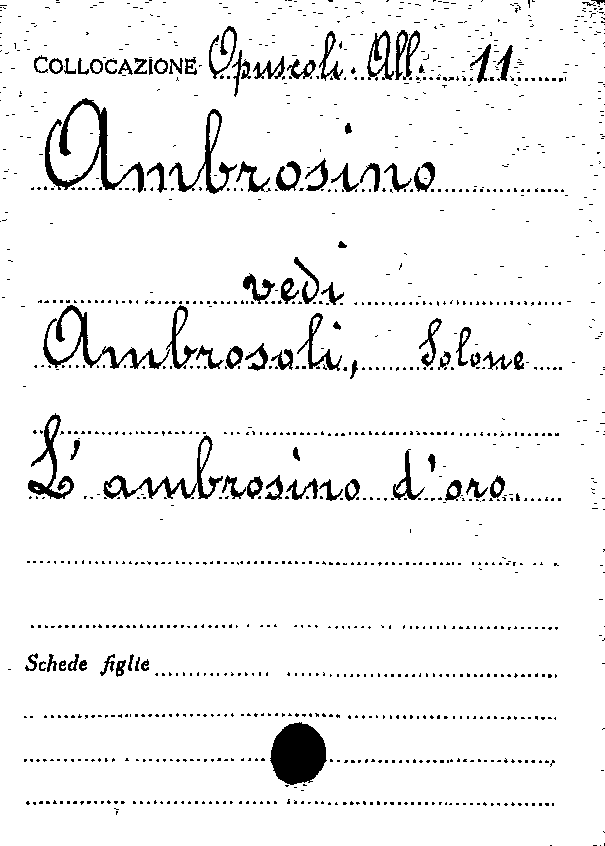 COLLOCAZIONE Opuscoli. All. 11
Ambrosino
vedi
Ambrosoli, Solone
L'ambrosino d'oro.
Schede figlie